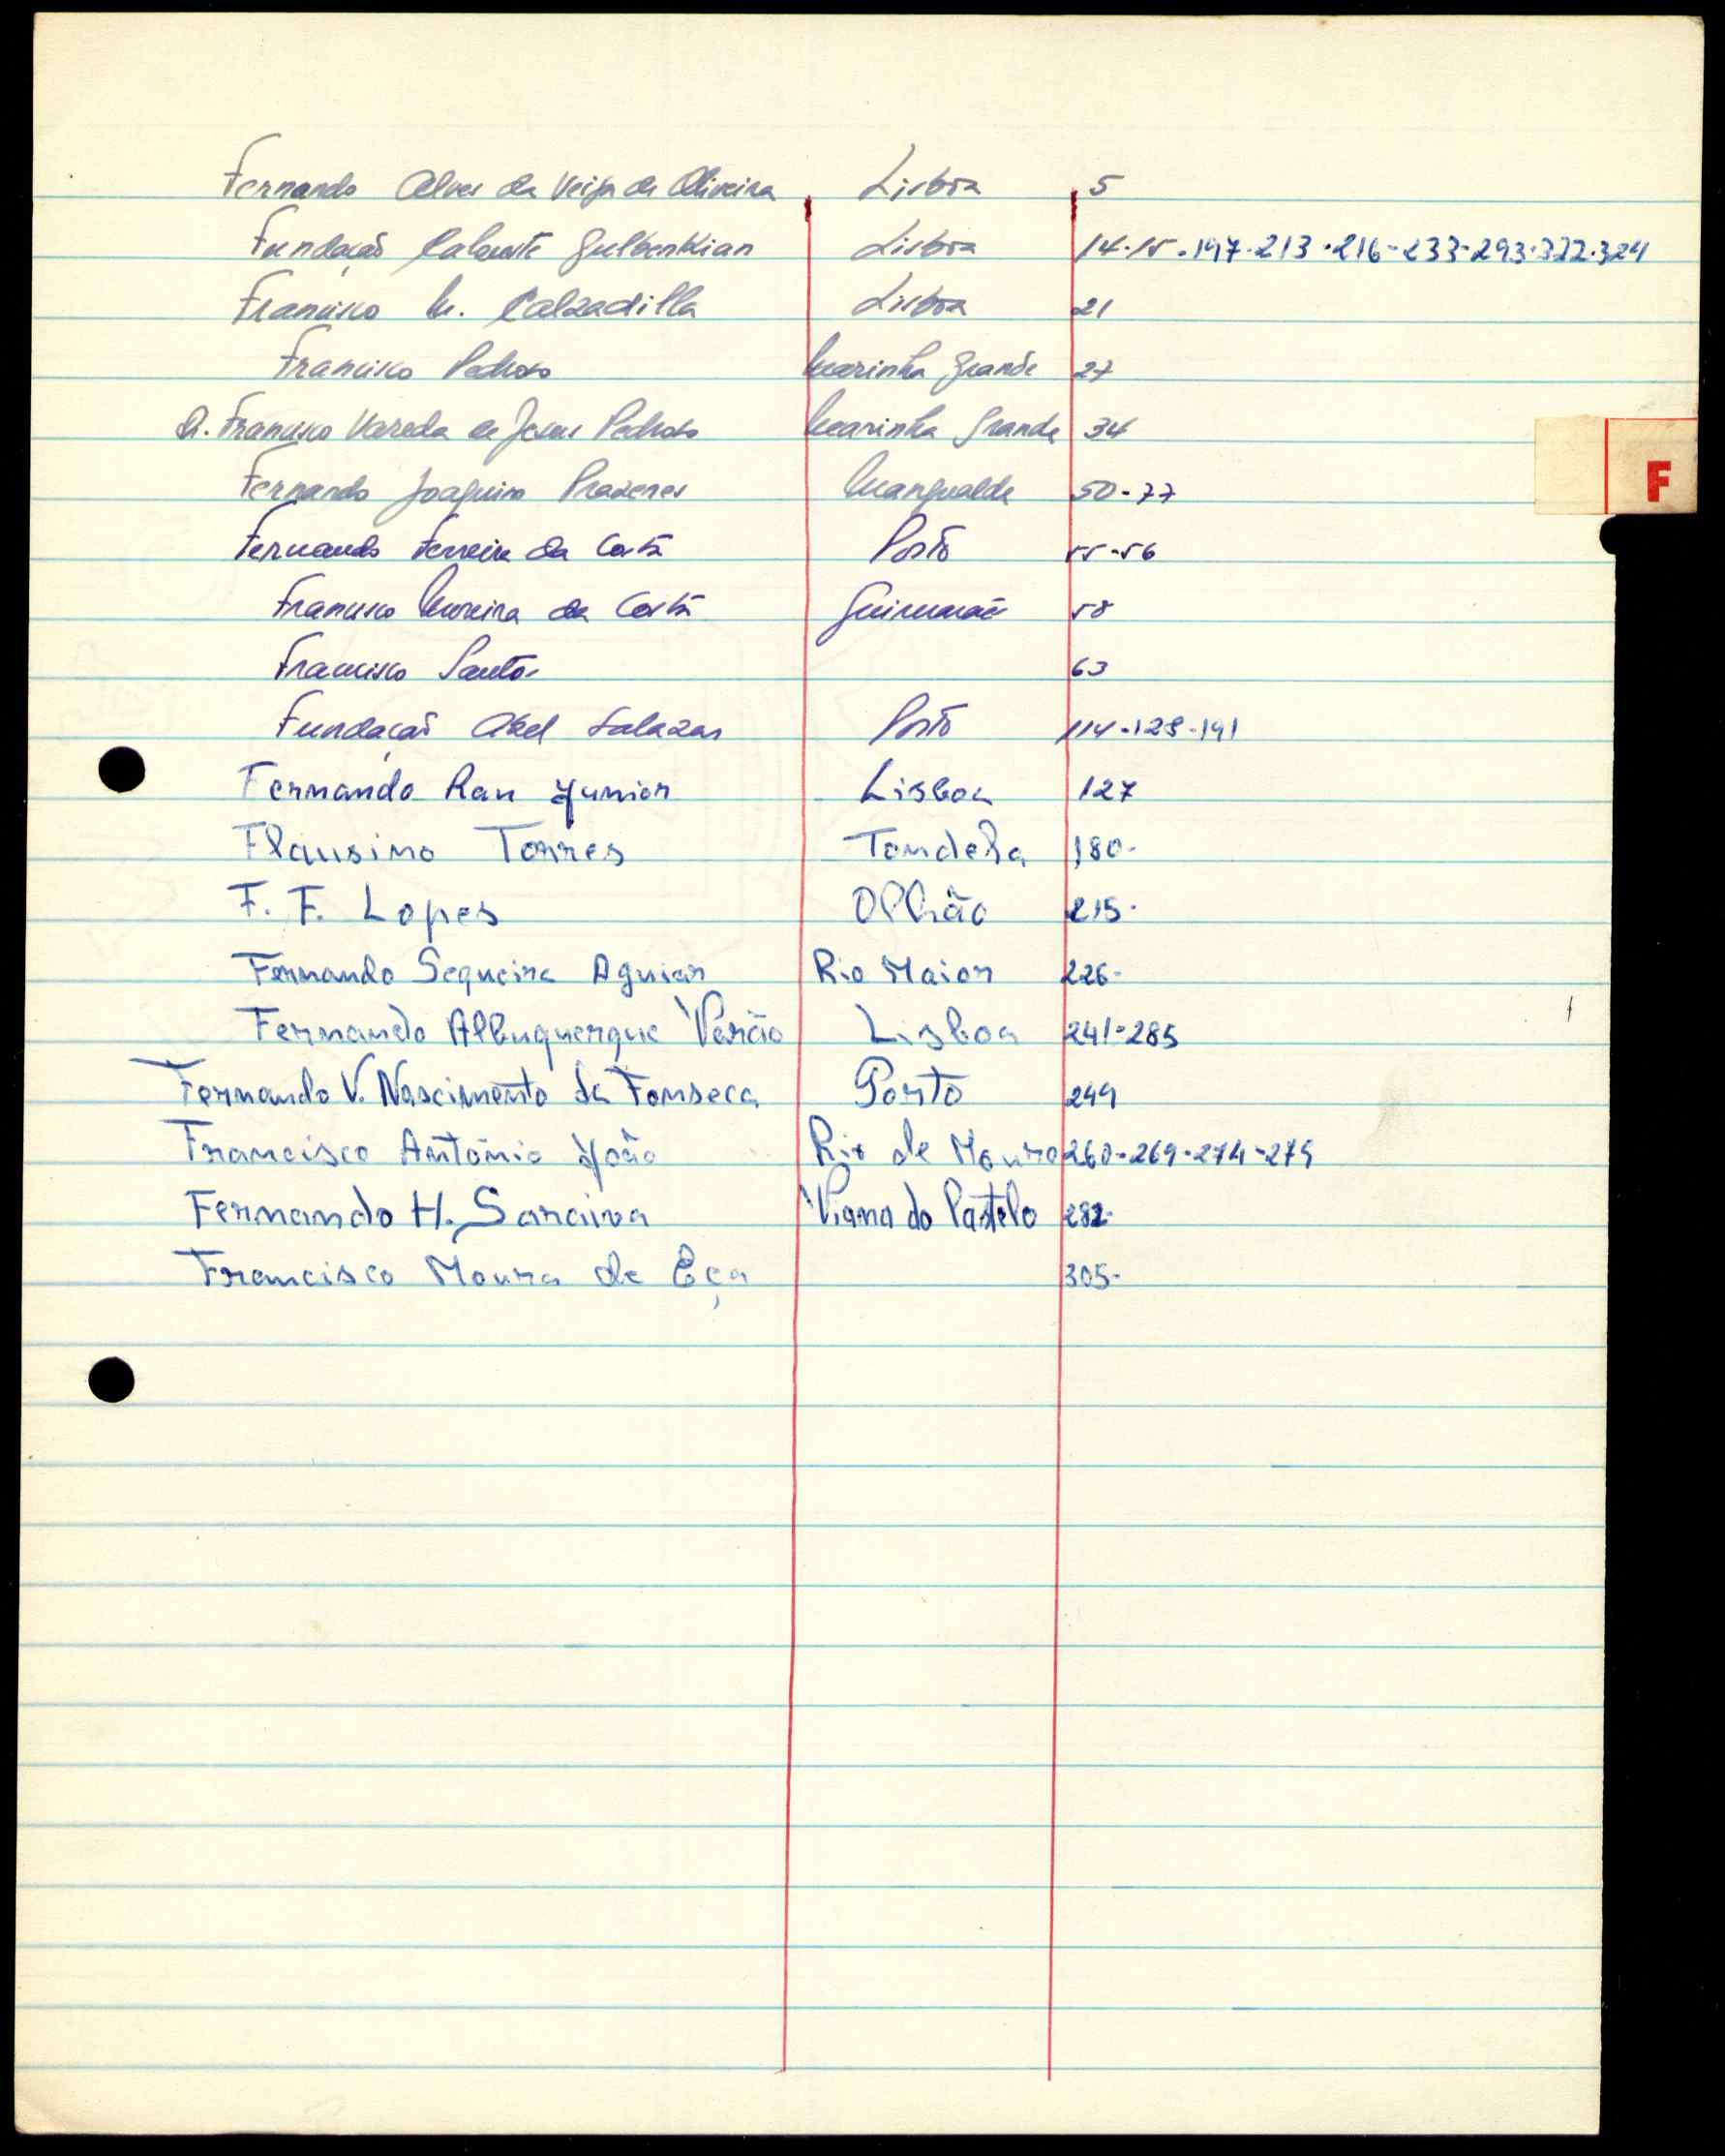 Fernando Alves da Veiga de Oliveira Lisboa 5
Fundação Calouste Gulbenkian Lisboa 14-15-197-213-216-233-293-322-324
Francisco M. Calzadilla Lisboa 21
Francisco Pedroso Marinha Grande 27
D. Francisco Vareda de Jesus Pedroso Marinha Grande 34
F
Fernando Joaquim Prazeres Mangualde 50-77
Fernando Ferreira da Costa Porto 55-56
Francisco Moreira da Costa Guimarães 58
Francisco Santos 63
Fundação Abel Salazar Porto 114-128-191
Fernando Rau Junior Lisboa 127
Flausino Torres Tondela 180-
F. F. Lopes Olhão 215-
Fernando Sequeira Aguiar Rio Maior 226-
Fernando Albuquerque Verão Lisboa 241-285
Fernando V. Nascimento da Fonseca Porto 249
Francisco António João Rio de Mouro 260-269-274-279
Fernando H. Saraiva Viana do Castelo 282-
Francisco Moura de Eça 305-